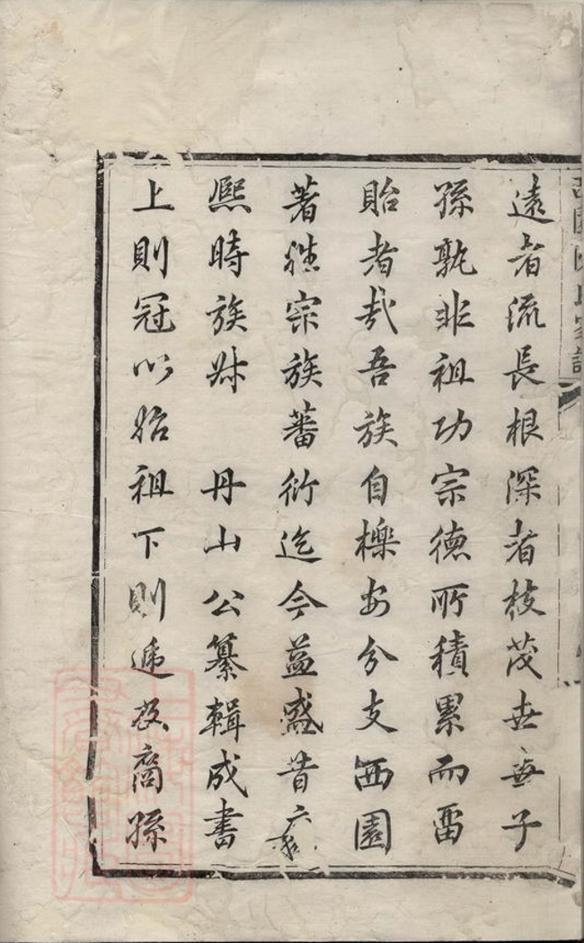 遠者流長根深者枝茂世無子
孫孰非祖功宗德所積累而畱
貽者哉吾族自櫟安分支西園
著姓宗族蕃衍迄今益盛昔康
熙時族叔　丹山公纂輯成書
上則冠以始祖下則遞及裔孫